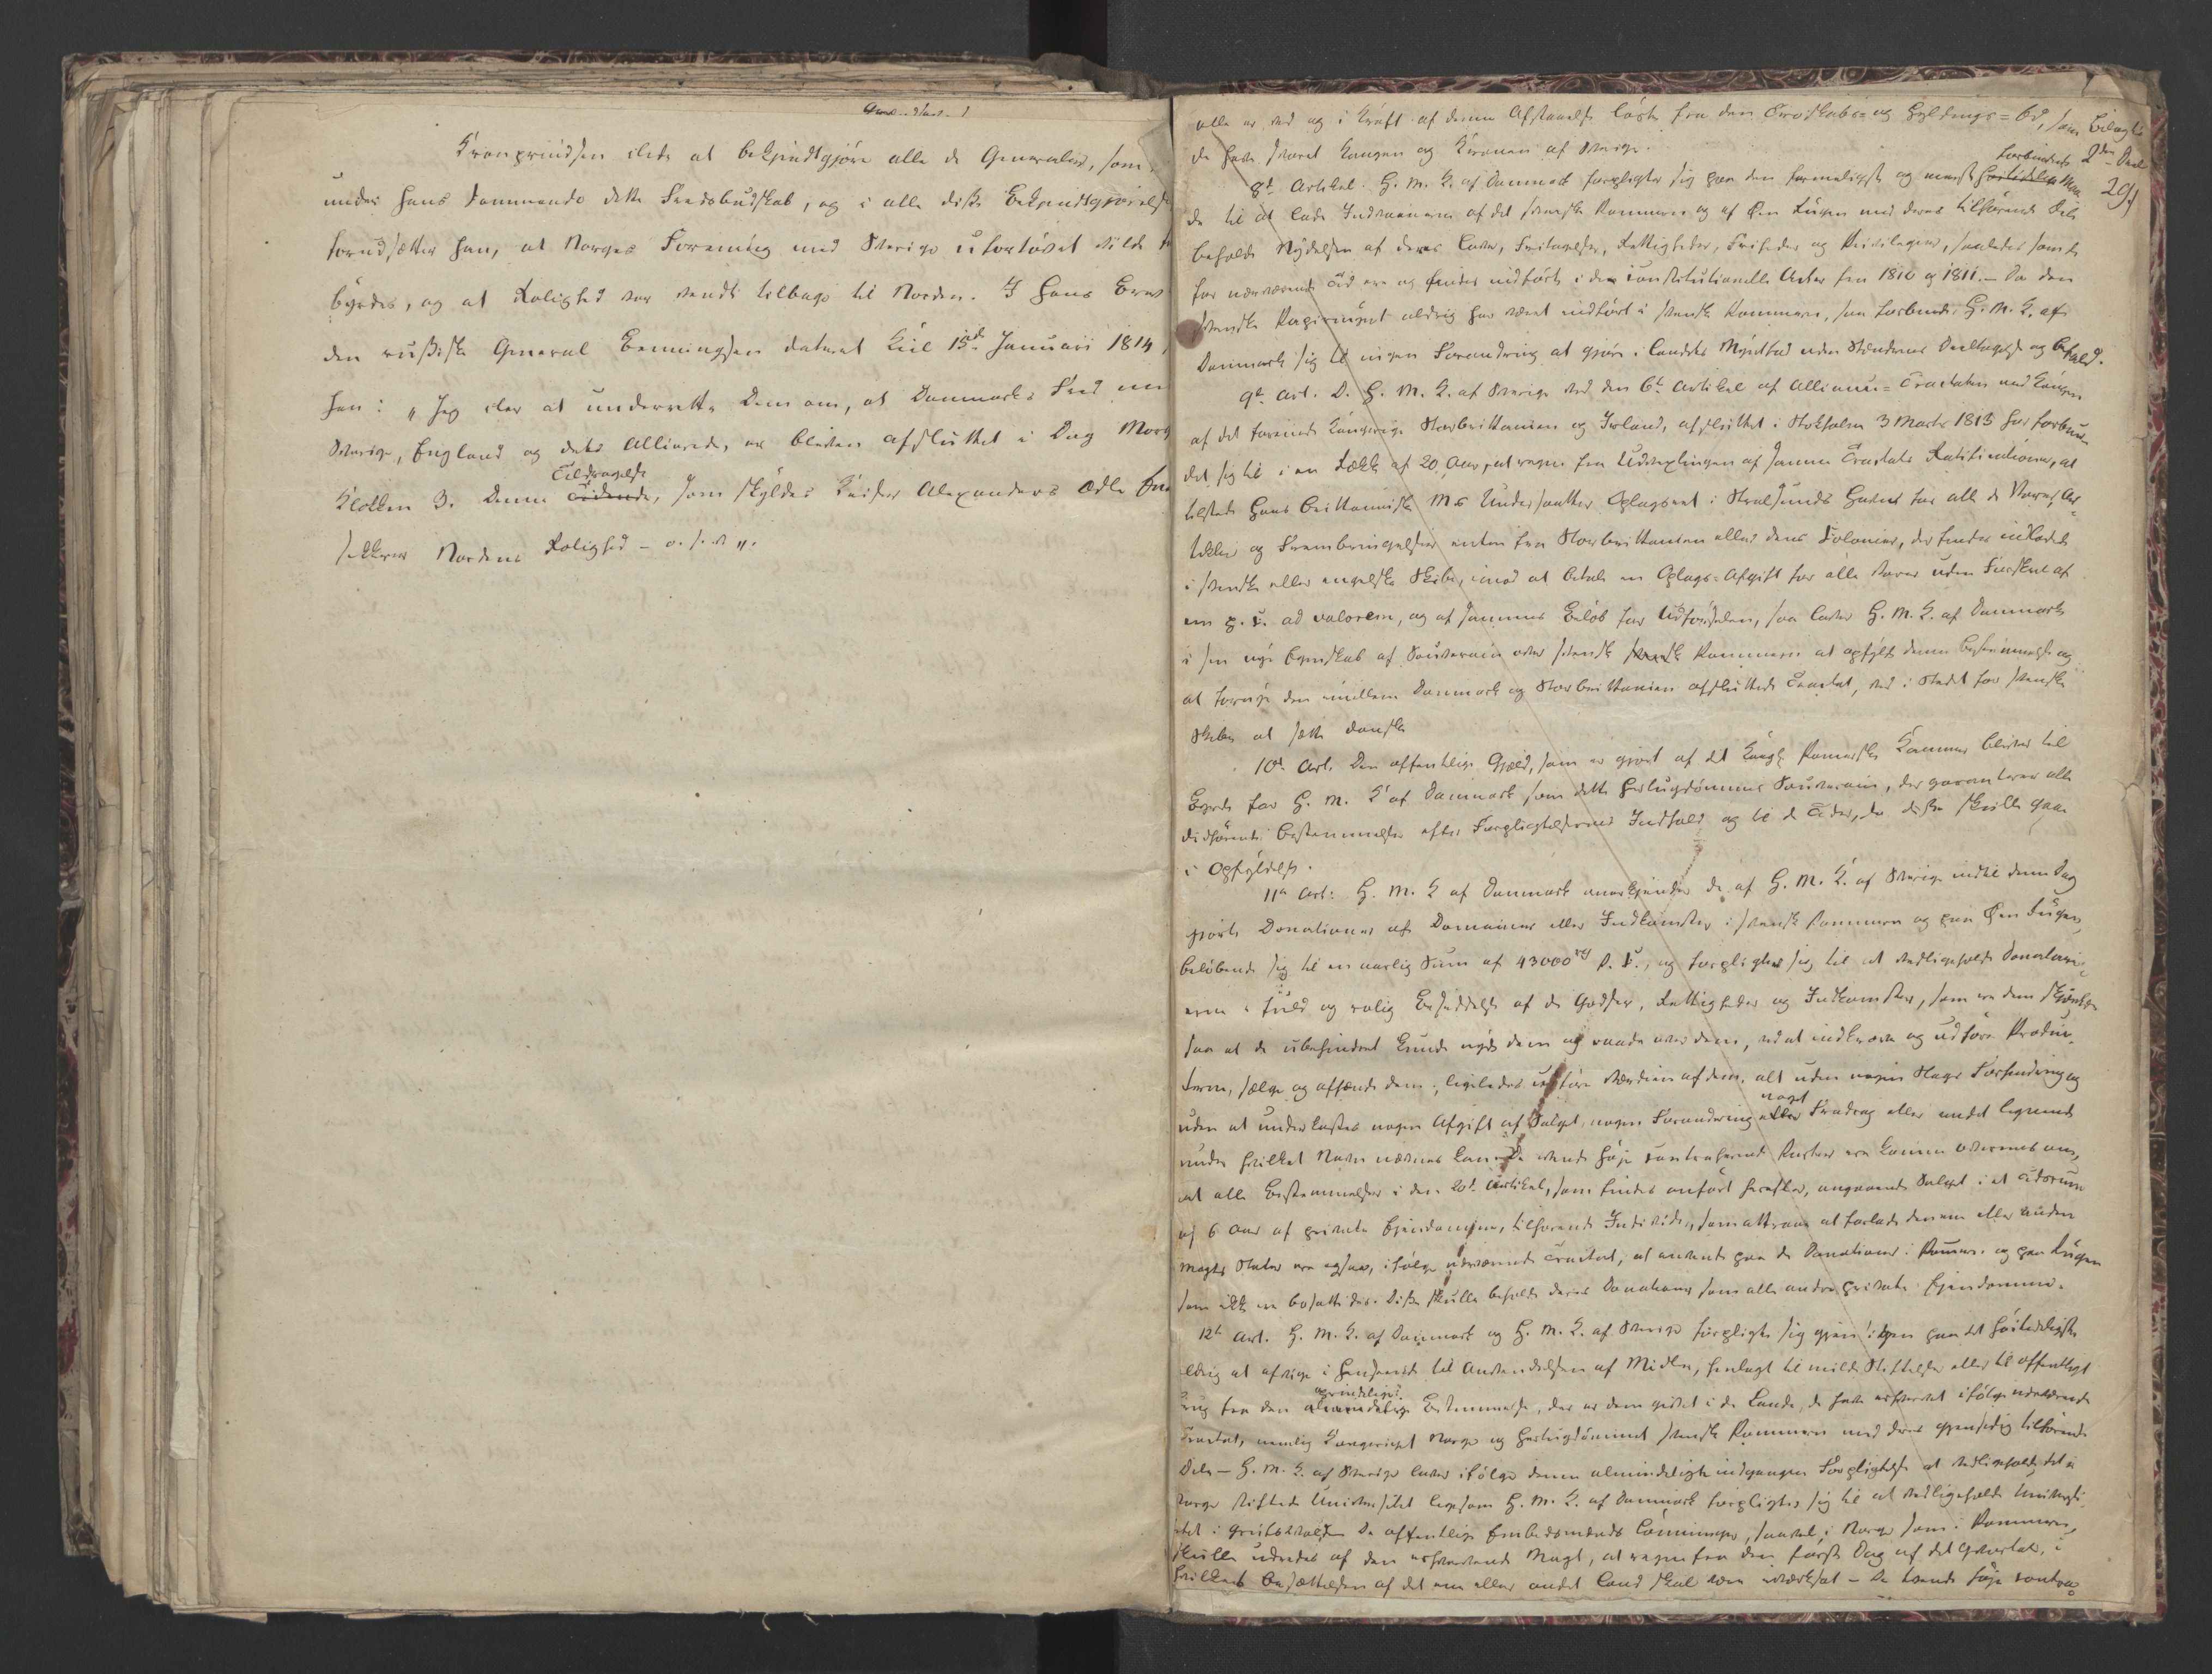 Kronprindsen ilede at bekjendtgjöre alle de Generaler, som
under hans Kommando dette Fredsbudskab, og i alle disse Bekjendtgjörelse
forudsætter han, at Norges Forening med Sverige ufortövet vilde
byrdes, og at Rolighed var vendt tilbage til Norden. I hans Brev
den russiske General Benningsen dateret Kiel 15de Januari 1814,
han: "Jeg iler at underrette Dem om, at Danmarks Fred
Sverige, England og dets Allierede, er bleven afsluttet i Dag Morg
Klokken 3. Denne Tildragelse, som skyldes Keiser Alexanders ædle
sikkrer Nordens Rolighed – o. s. v.".
alle er ved og i Kraft af denne Afstaaelse löste fra den Troskabs- og Hyldings-Ed, som
de have svoret Kongen og Kronen af Sverige.
Bilag til
2den Deel
291
8de Artikel. H. M. K. af Danmark forpligter sig paa den formeligste og meest forbindende Maa-
de til at lade Indvaanerne af det svenske Pommern og af Öen Rügen med deres tilhörende Dele
beholde Nydelsen af deres Love, Fritagelser, Rettigheder, Friheder og Privilegier, saaledes som de
for nærværende Tid ere og findes indförte i de constitutionelle Acter fra 1810 og 1811. – Da den
svenske Papirmynt aldrig har været indfört i svensk Pommern, saa forbinder H. M. K. af
Danmark sig til ingen Forandring at gjöre i Landets Myntfod uden Stændernes Deeltagelse og
9de Art. D. H. M. K. af Sverige ved den 6te Artikel af Alliance-Tractaten med Kongen
af det forenede Kongerige Storbrittanien og Irland, afsluttet i Stokholm 3 Marts 1813 har forbun-
det sig til i en Række af 20 Aar, at regne fra Udvexlingen af samme Tractats Ratificationer, at
tilstede Hans Brittanniske M.s Undersaatter Oplagsret i Stralsunds Havn for alle de Varer, Ar-
tikler og Frembringelser enten fra Storbrittanien eller dens Colonier, der findes indladede
i svenske eller engelske Skibe, imod at betale en Oplags-Afgift for alle Varer uden Forskiel af
een p. C. ad valorem, og af samme Belöb for Udförselen, saa lover H. M. K. af Danmark
i sin nye Egenskab af Souverain over svensk Pommern at opfylde denne Bestemmelse og
at fornye den imellem Danmark og Storbrittanien afsluttede Tractat, ved i Stedet for svenske
Skibe at sætte danske
10de Art. Den offentlige Gjæld, som er gjort af det Kongl. Pommerske Kammer bliver til
Byrde for H. M. K. af Danmark som dette Hertugdömmes Souverain, der garanterer alle
didhörende Bestemmelser efter Forpligtelsernes Indhold og til de Tider, da disse skulle gaae
i Opfyldelse.
11te Art: H. M. K af Danmark anerkjender de af H. M. K. af Sverige indtil denne Dag
gjorte Donationer af Domainer eller Indkomster i svensk Pommern og paa Öen Rügen,
belöbende sig til en aarlig Sum af 43000 P. C., og forpligter sig til at vedligeholde Donatari-
erne i fuld og rolig Besiddelse af de Godser, Rettigheder og Indkomster, som ere dem skjænkede
saa at de ubehindret kunde nyde dem og raade over dem, ved at indkræve og udföre Produc-
terne, sælge og afhænde dem, ligeledes udföre Værdien af dem, alt uden nogen Slags Forhindring og
uden at underkastes nogen Afgift af Salget, nogen Forandring noget Fradrag eller andet lignende
under hvilket Navn nævnes kan. De tvende höje contraherende Parter ere komne overeens om,
at alle Bestemmelser i den 20de Artikel, som findes anfört herefter, angaaende Salget i et Tidsrum
af 6 Aar af private Ejendomme, tilhörende Individer, som attraae at forlade denne eller hiin
Magts Stater ere ogsaa, ifölge nærværende Tractat, at anvende paa de Donationer i Pommern og paa Rügen
som ikke ere bosatte der. Disse skulle beholde deres Donationer som alle andre private Ejendomme.
12te Art. H. M. K. af Danmark og H. M. K. af Sverige forpligte sig gjensidigen paa det höitideligste
aldrig at afvige i Henseende til Anvendelsen af Midler, henlagt til milde Stiftelser eller til offentligt
Brug fra den oprindelige Bestemmelse, der er dem givet i de Lande, de have erhvervet ifölge nærværende
Tractat, nemlig Kongeriget Norge og Hertugdömmet svensk Pommern med deres gjensidig tilhörende
Dele – H. M. K. af Sverige lover ifölge denne almindelige indgangne Forpligtelse at vedligeholde det i
Norge stiftede Universitet ligesom H. M. K. af Danmark forpligter sig til at vedligeholde Universi-
tetet i Greifswalde. De offentlige Embedsmænds Lönninger, saavel i Norge som i Pommern,
skulle udredes af den erhvervende Magt, at regne fra den förste Dag af det Qvartal, i
hvilket Besættelsen af det ene eller andet Land skal være iværksat – De tvende höje contra-